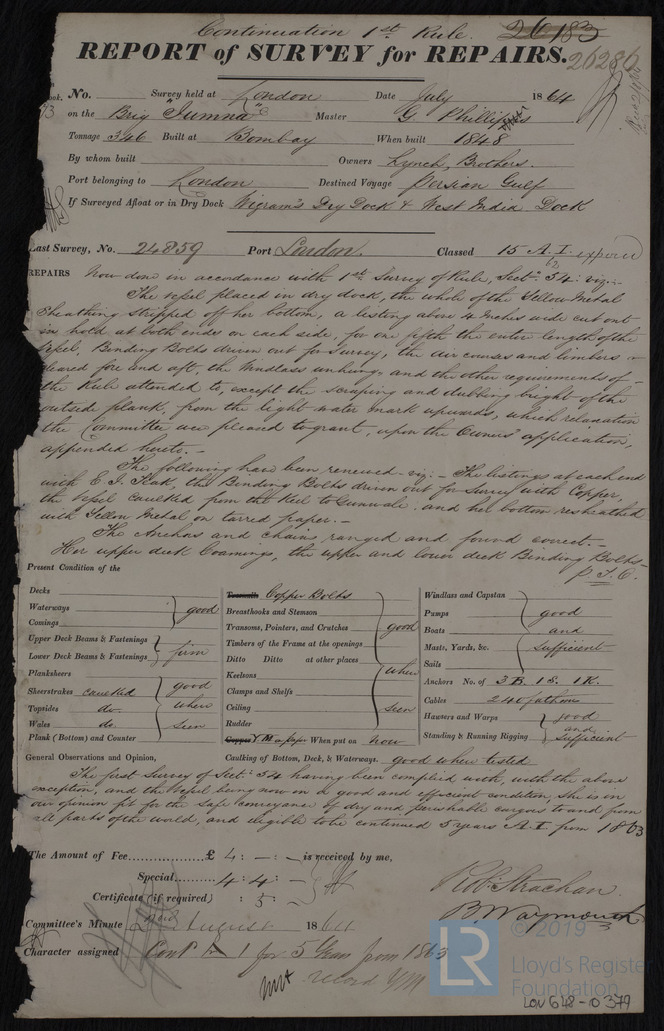 Continuation 1st Rule. 26183
REPORT of SURVEY for REPAIRS. 26286
No. Survey held at London Date July 1864
on the Brig "Jumna" Master G Phillips
Tonnage 346 Built at Bombay When built 1848
By whom built Owners Lynch, Brothers.
Port belonging to London Destined Voyage Persian Gulf
If Surveyed Afloat or in Dry Dock Wigram's Dry Dock & West India Dock
Last Survey, No. 24859 Port London. Classed 15 A.I. expired
62
REPAIRS Now done in accordance with 1st Survey of Rule, Sectn. 54: viz:-
The vessel placed in dry dock, the whole of the Yellow Metal
Sheathing stripped off her bottom, a listing above 4 Inches wide cut out
in hold at both ends on each side, for one fifth the entire length of the
Vessel, Binding Bolts driven out for survey, the air courses and limbers
cleared fore and aft, the Windlass unhung, and the other requirements of
the Rule attended to, except the scraping and dubbing bright of the
outside plank, from the light water mark upwards, which relaxation
the Committee were pleased to grant, upon the Owners' application,
appended hereto.-
The following have been renewed - viz: - The listings at each end
with E. I. Teak, the Binding Bolts driven out for Survey with Copper,
the Vessel caulked from the Keel to Gunwale and her bottom resheathed
with Yellow Metal on tarred paper.-
The Anchors and chains ranged and found correct.-
Her upper deck Coamings, the upper and lower deck Binding Bolts
P.T.O.
Present Condition of the
Decks
Waterways good
Comings
Upper Deck Beams & Fastenings
Lower Deck Beams & Fastenings firm
Planksheers
Sheerstrakes caulked good
Topsides do. when
Wales do. seen
Plank (Bottom) and Counter
Treenails Copper Bolts
Breasthooks and Stemson
Transoms, Pointers, and Crutches good
Timbers of the Frame at the openings
Ditto Ditto at other places
Keelsons when
Clamps and Shelfs
Ceiling seen
Rudder
Copper YM on paper When put on Now
Windlass and Capstan
Pumps good
Boats and
Masts, Yards, &c. sufficient
Sails
Anchors No. of 3 B. 1 S. 1 K.
Cables 240 fathoms
Hawsers and Warps good
and
Standing & Running Rigging sufficient
General Observations and Opinion, Caulking of Bottom, Deck, & Waterways. good when tested
The first Survey of Sect: 54 having been complied with, with the above
exception, and the Vessel being now in a good and efficient condition, she is in
our opinion fit for the safe conveyance of dry and perishable cargoes to and from
all parts of the world, and eligible to be continued 5 years A.I. from 1863
The Amount of Fee............... £ 4: -: - is received by me,
Special......... 4: 4: -
Certificate (if required) : 5: -
Robt. Strachan.
B. Waymouth
Committee's Minute 2nd August 1864
Character assigned Cont A 1 for 5 Years from 1863
record YM
© 2019
LR
Lloyd's Register
Foundation
LON 648-0379